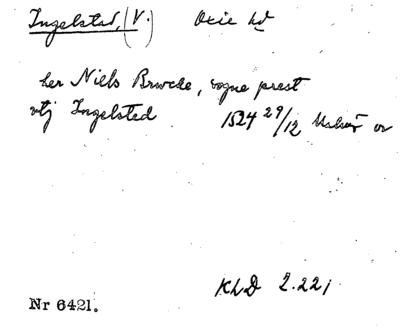 Ingelstad, (V.) Oxie hd
her Niels Brwcke, sogne prest
vtj Ingelsted 1524 29/12 or
KLD 2.221
Nr 6421.